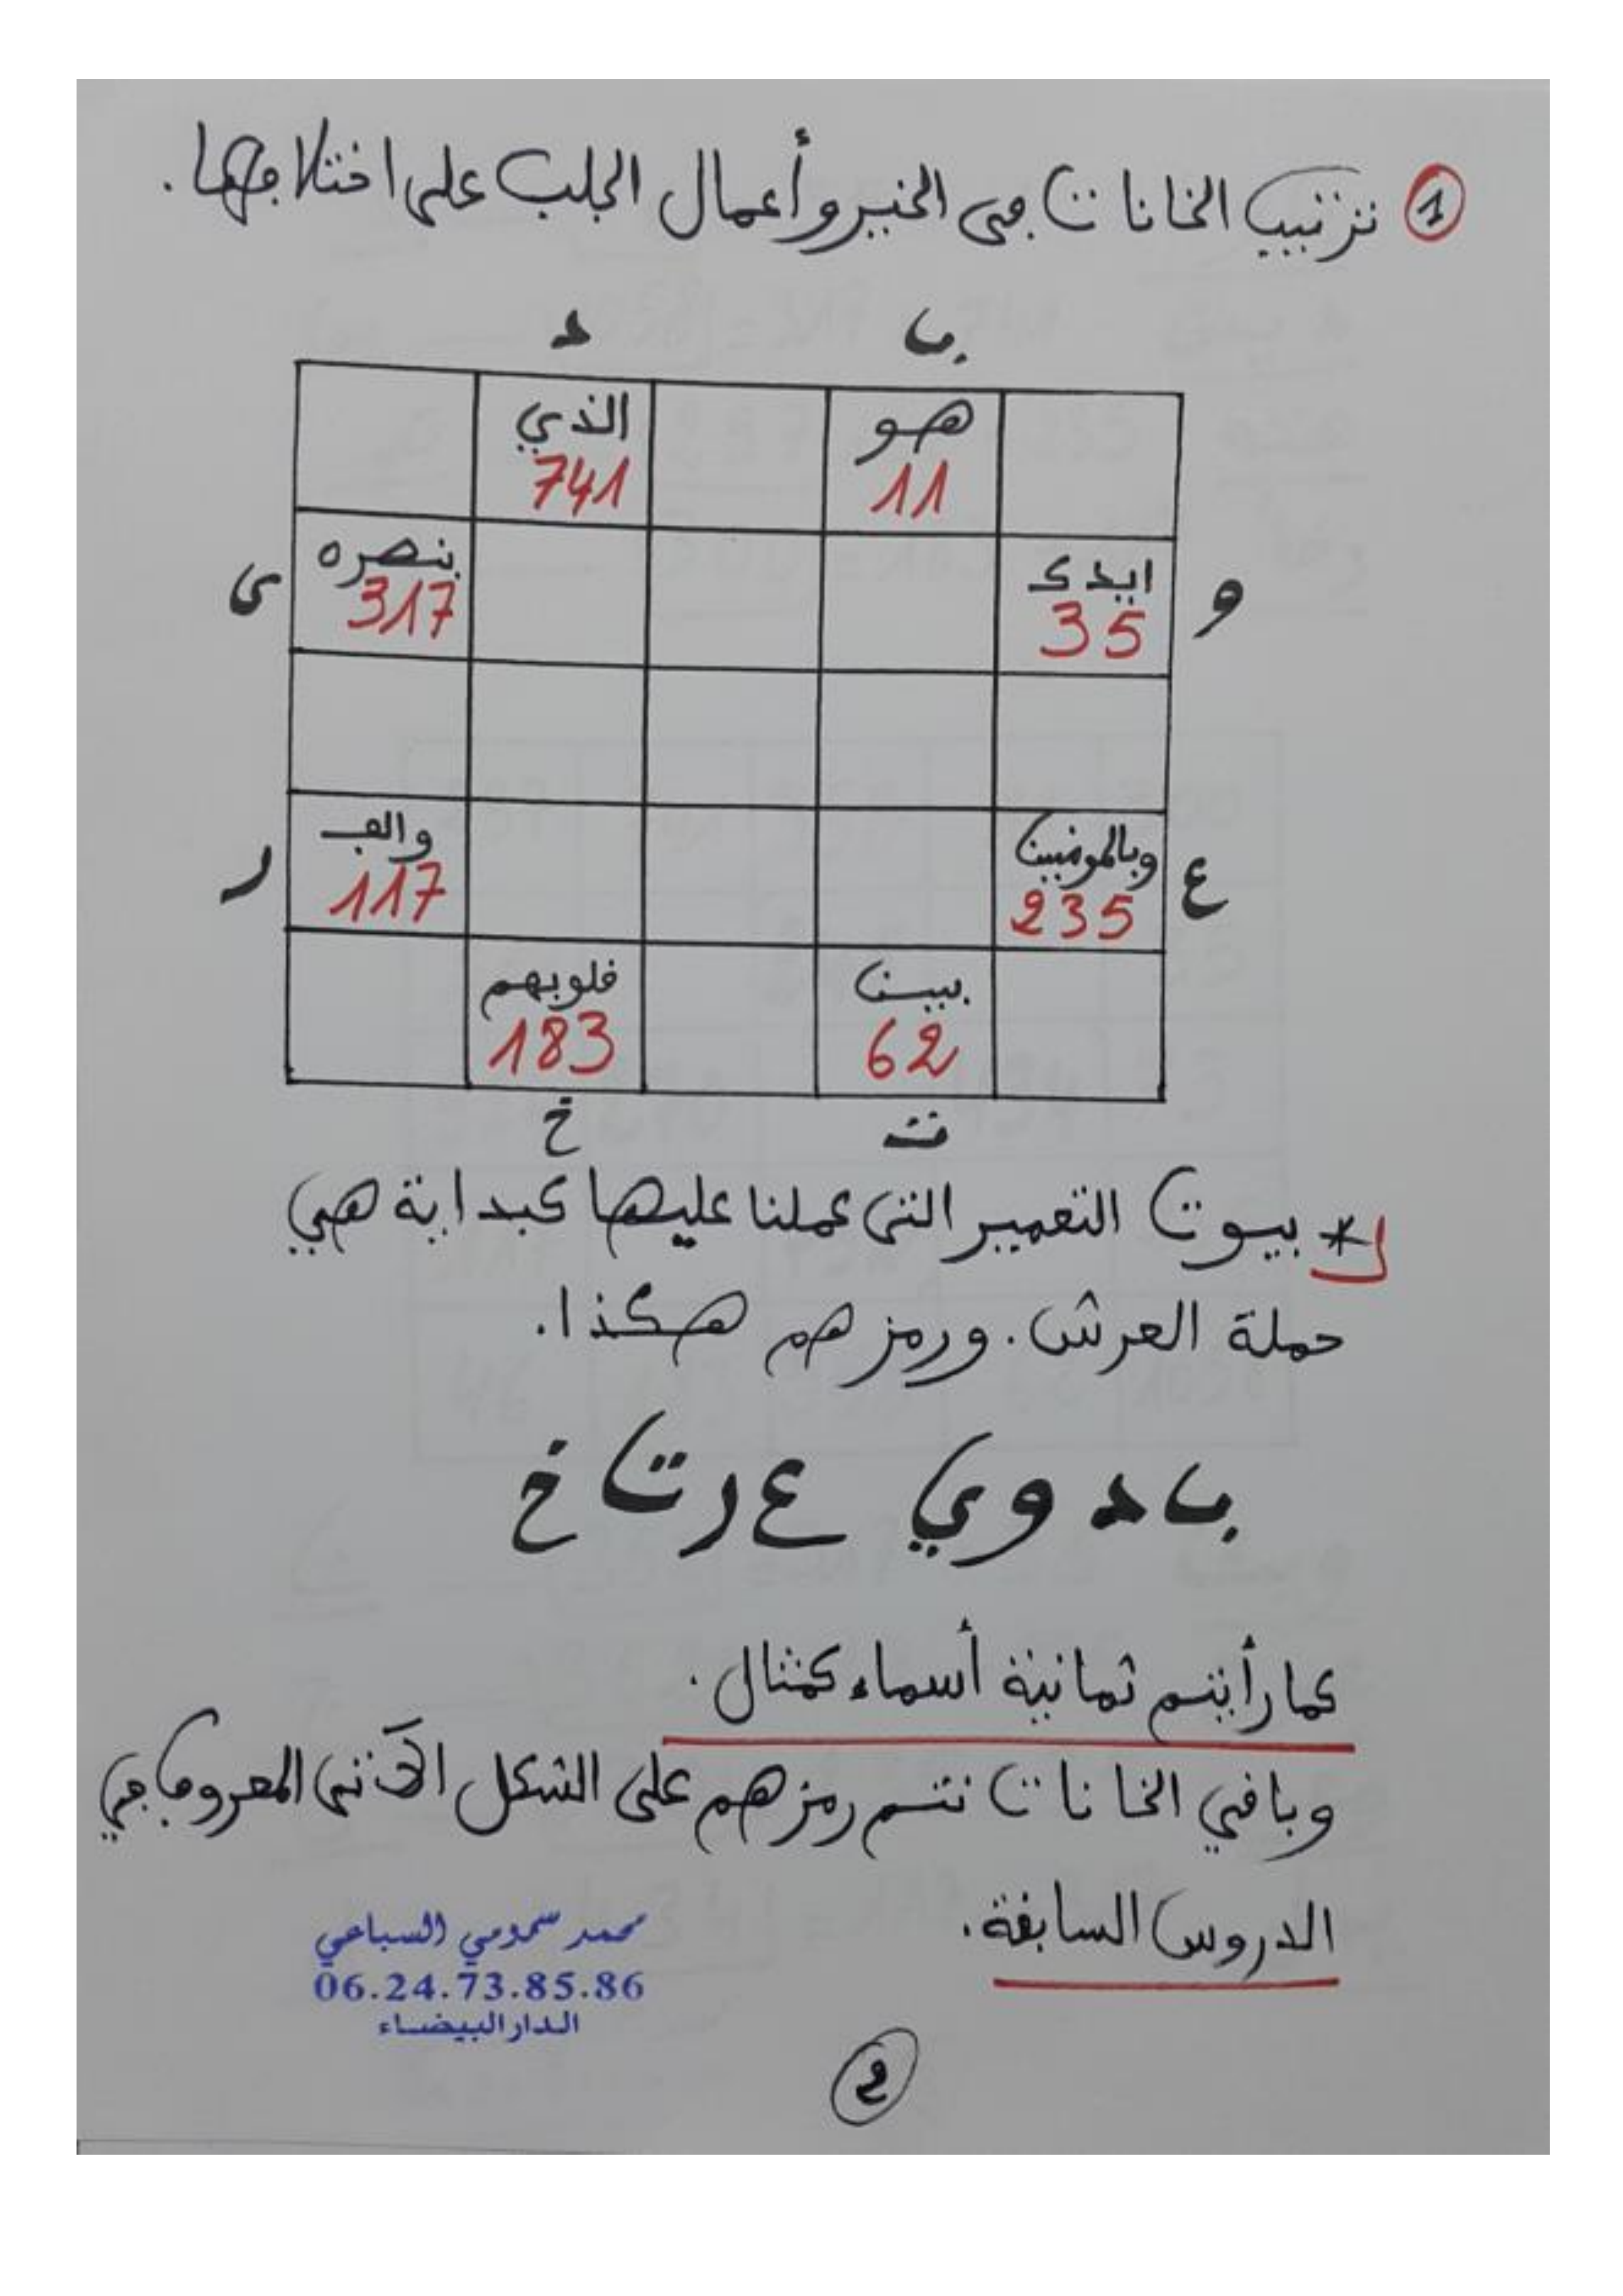 1 ترتيب الخانات في الخير وأعمال الجلب على اختلافها.
ب د
هو الذي
11 741
و ايدك بنصره ى
35 317
ع وبالمومنين والف ر
235 117
بين قلوبهم
62 183
ت خ
* بيوت التعمير التي عملنا عليها كبداية هي
حملة العرش. ورمزهم هكذا.
ب د و ي ع ر ت خ
كما رأيتم ثمانية أسماء كمثال.
وباقي الخانات تتم رمزهم على الشكل الآتي المعروف في
الدروس السابقة.
محمد سمومي السباعي
06.24.73.85.86
الدار البيضاء
2